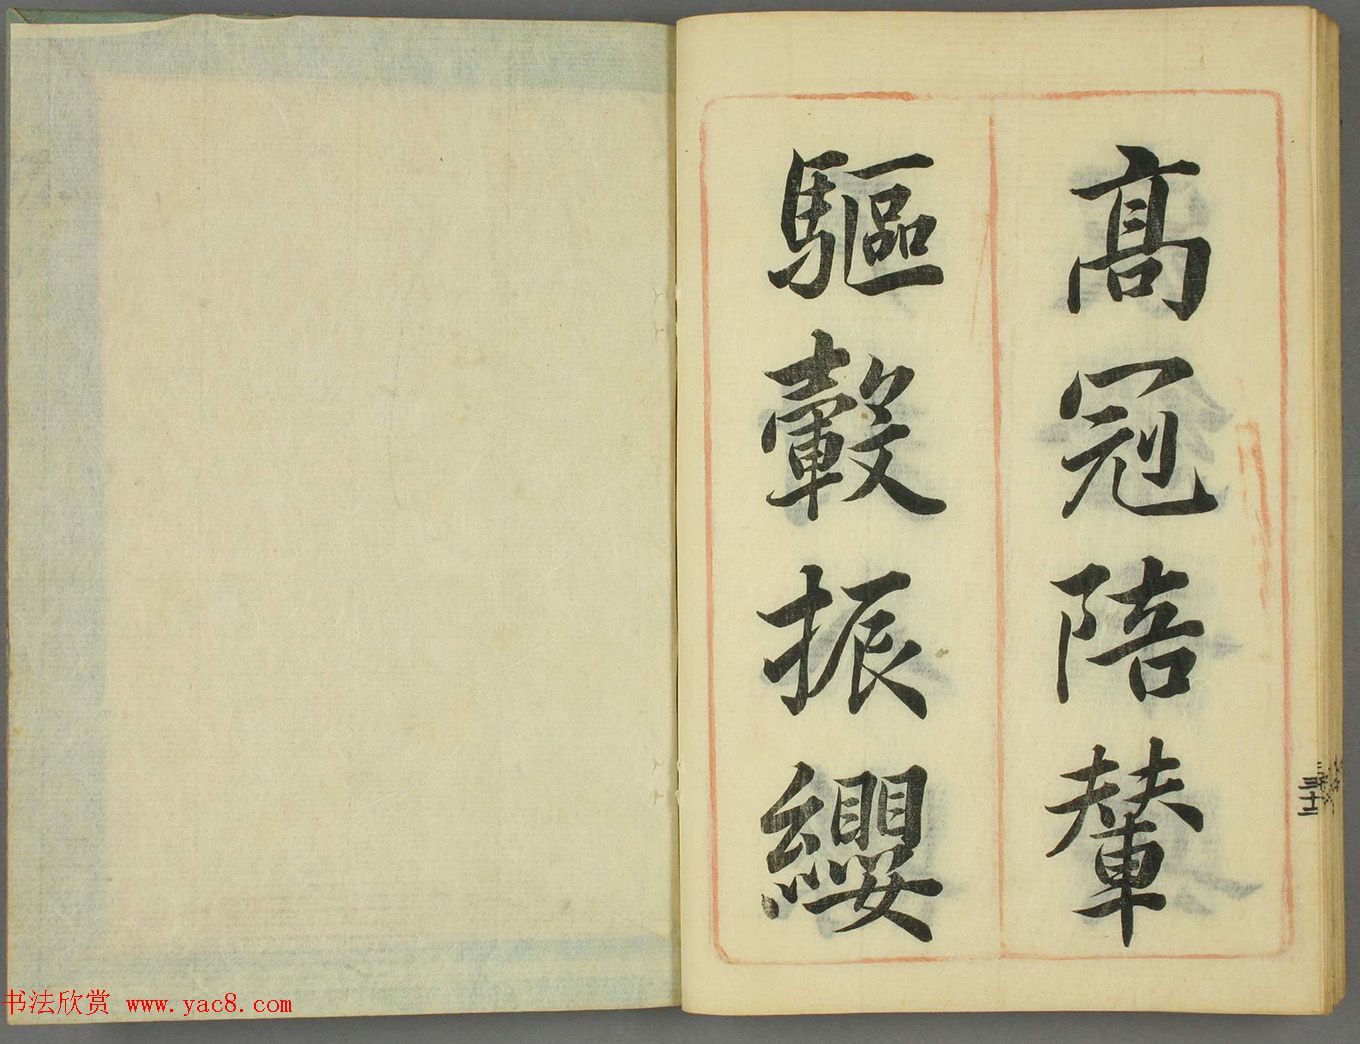 高冠陪輦
驅轂振纓
三十二
书法欣赏 www.yac8.com